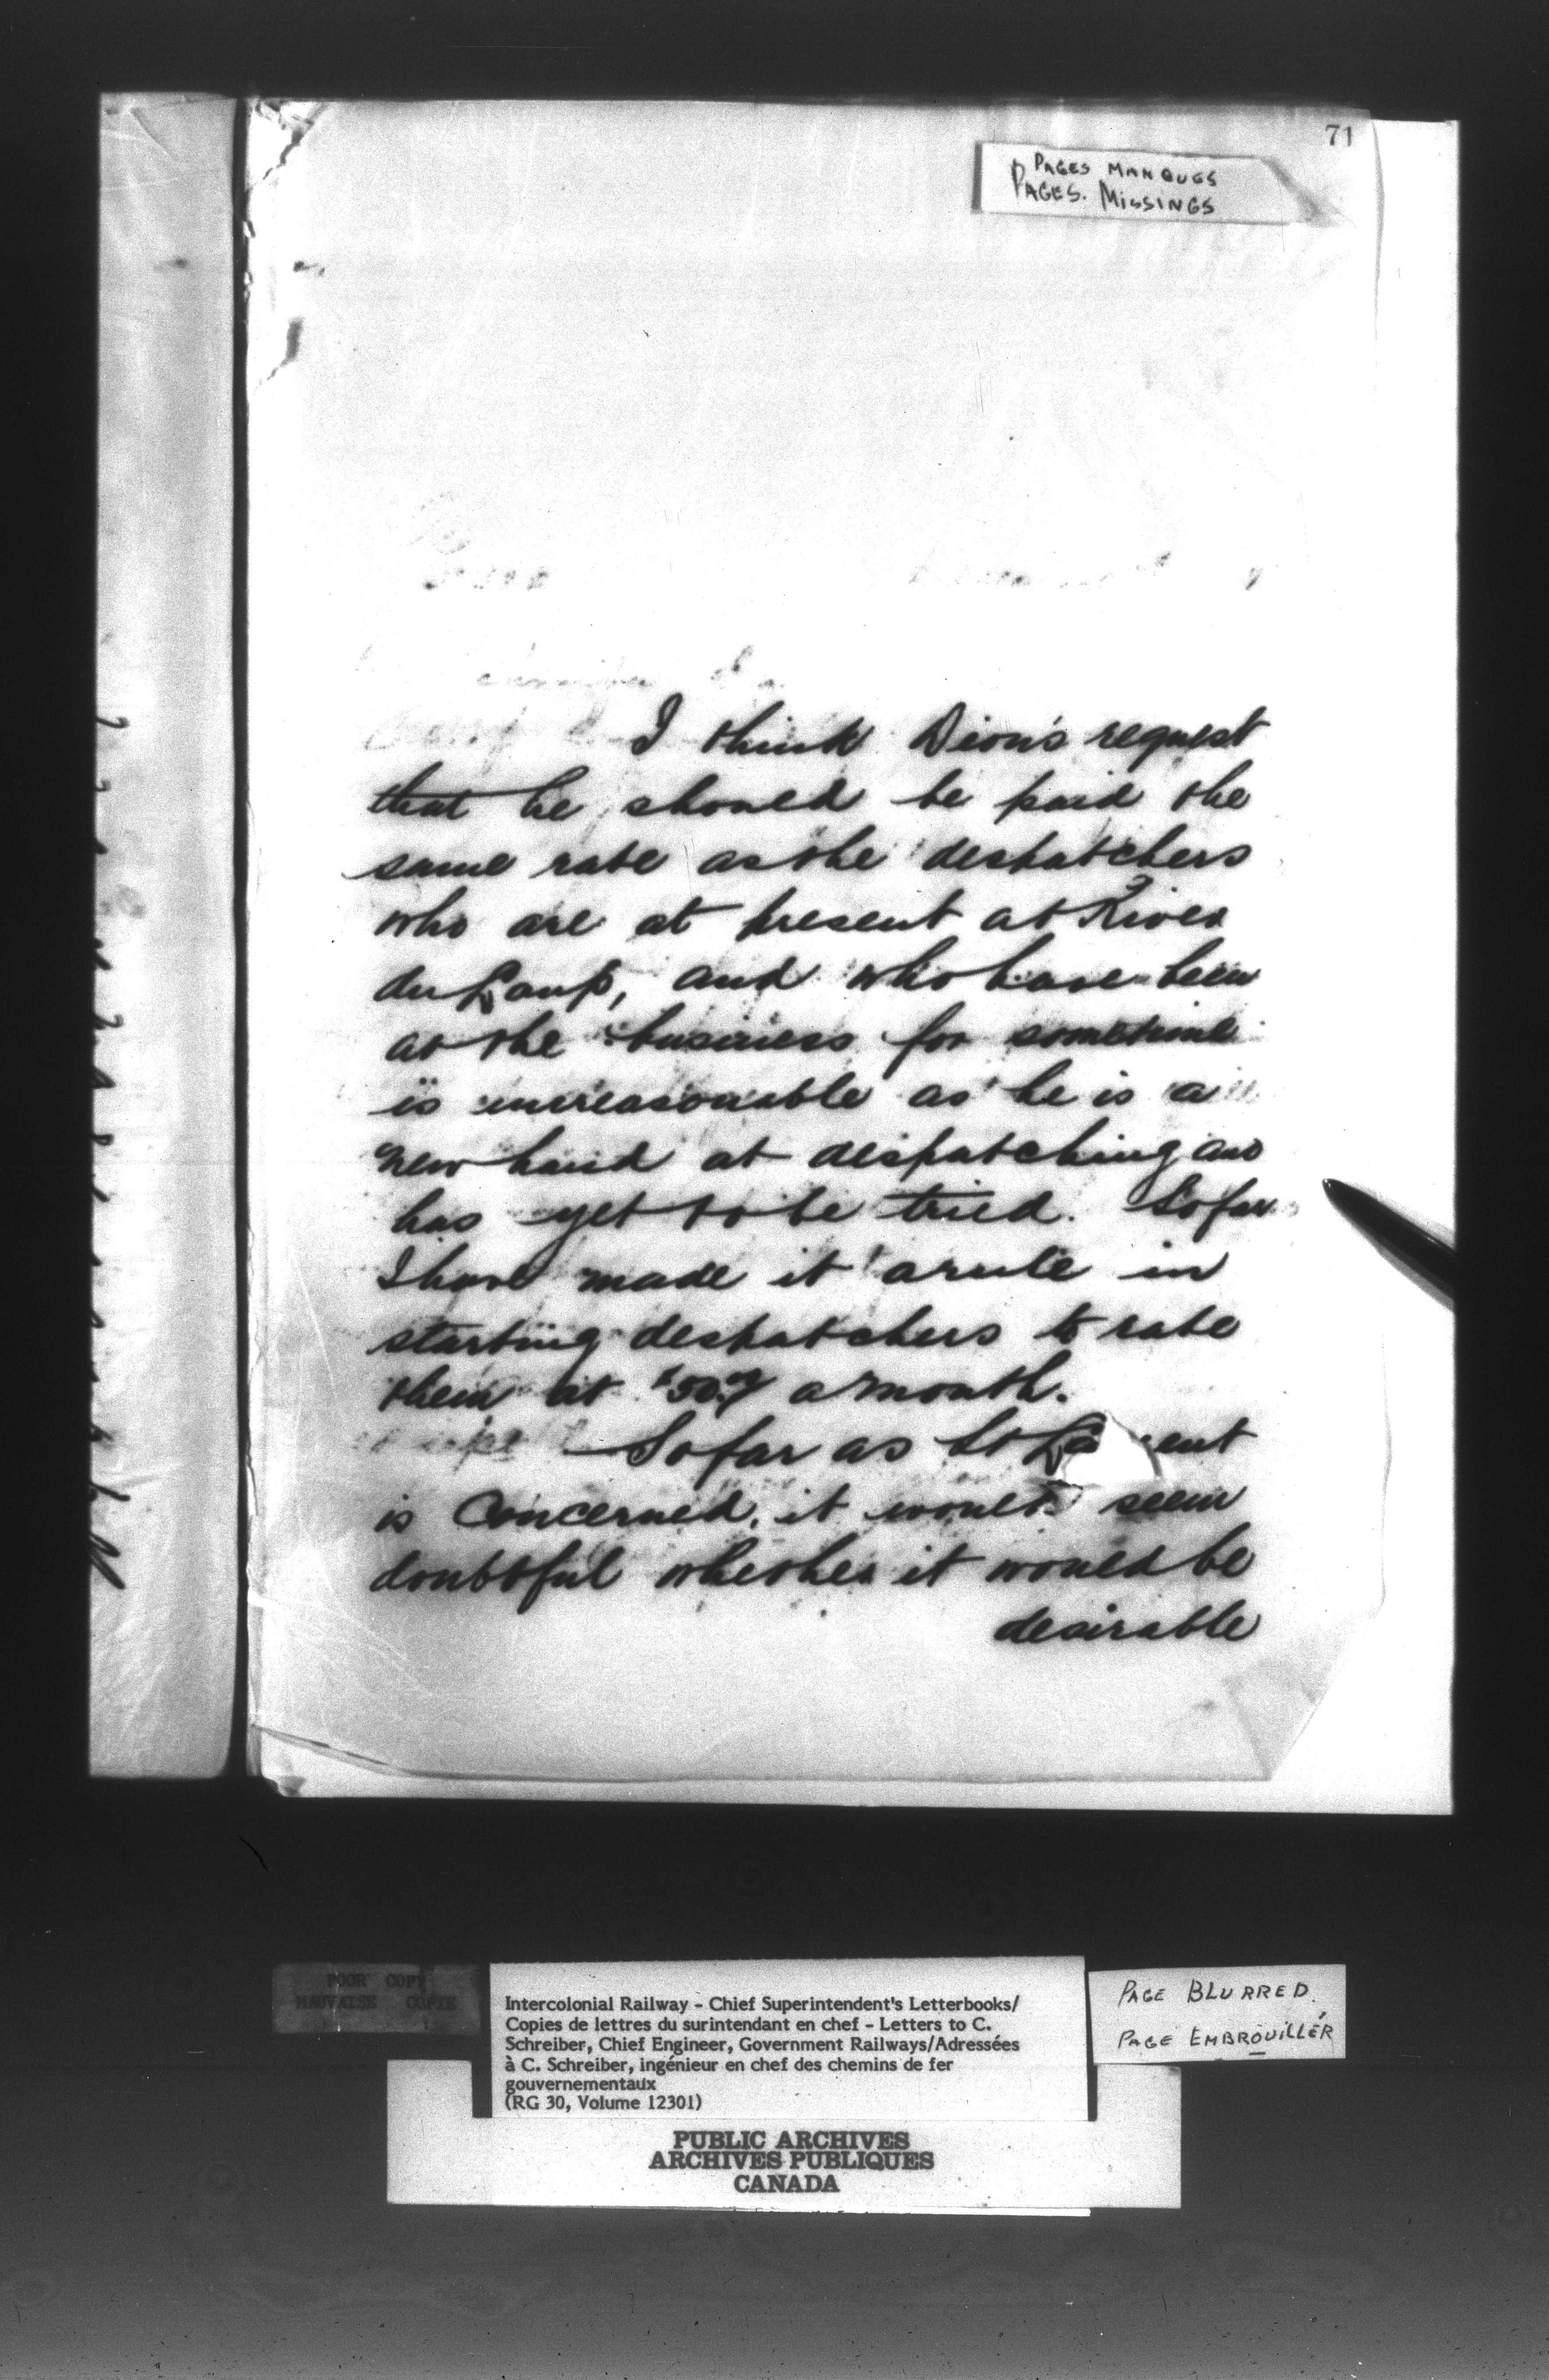 71
PAGES MANQUES
PAGES. MISSINGS
I think Dion's request
that he should be paid the
same rate as the despatchers
who are at present at River
du Loup, and who have been
at the business for sometime
is unreasonable as he is a
new hand at despatching and
has yet to be tried. Sofar
I have made it a rule in
starting despatchers to rate
them at $50 a month.
Sofar as St ent
is concerned, it would seem
doubtful whether it would be
desirable
POOR COPY
MAUVAISE COPIE
Intercolonial Railway - Chief Superintendent's Letterbooks/
Copies de lettres du surintendant en chef - Letters to C.
Schreiber, Chief Engineer, Government Railways/Adressées
à C. Schreiber, ingénieur en chef des chemins de fer
gouvernementaux
(RG 30, Volume 12301)
PAGE BLURRED.
PAGE EMBROUILLÉR
PUBLIC ARCHIVES
ARCHIVES PUBLIQUES
CANADA